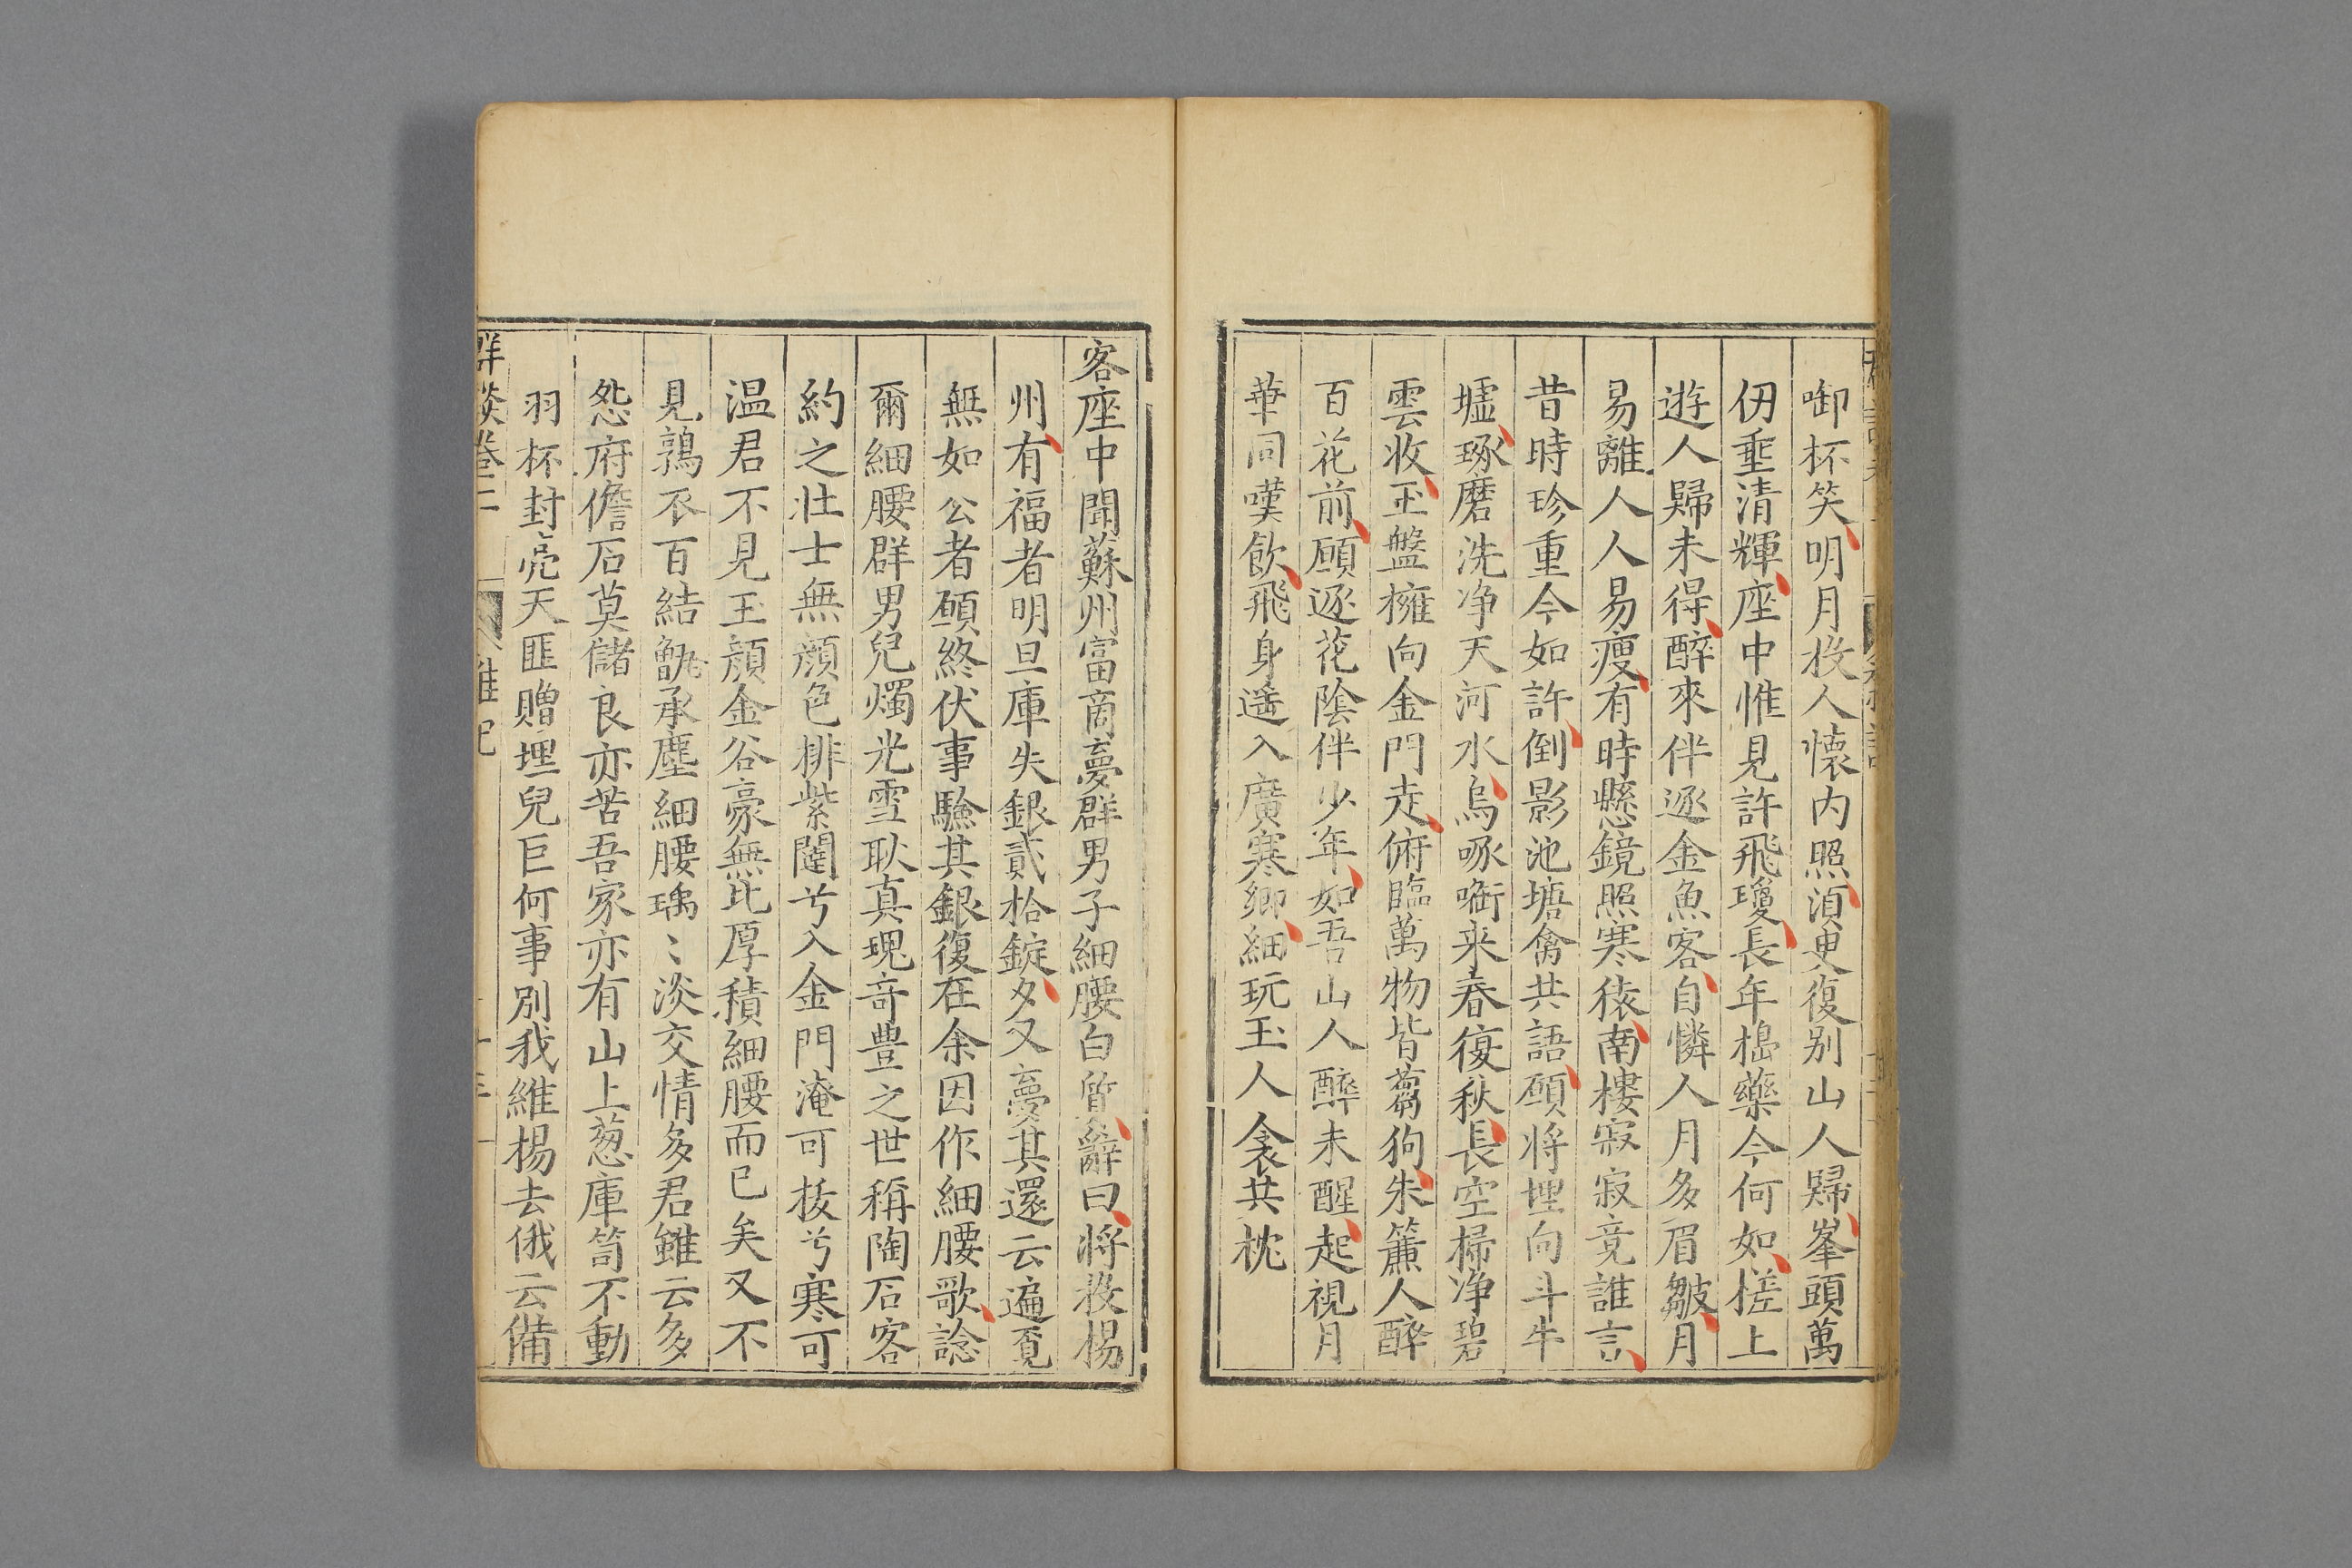 啣杯笑明月投人懷内照湏臾復别山人歸峯頭萬
仞垂清輝座中惟見許飛瓊長年搗藥今何如槎上
遊人歸未得醉來伴逐金魚客自憐人月多眉皺月
易離人人易瘦有時懸鏡照寒猿南樓寂寂竟誰言
昔時珍重今如許倒影池塘禽共語願將埋向斗牛
墟琢磨洗净天河水烏啄㗸来春復秋長空掃净碧
雲收玉盤擁向金門走俯臨萬物皆蒭狗朱簾人醉
百花前願逐花陰伴少年如吾山人醉未醒起視月
華同嘆飲飛身遥入廣寒鄉細玩玉人衾共枕
客座中聞蘇州富商夢群男子細腰白質辭曰將投楊
州有福者明旦庫失銀貳拾錠夕又夢其還云遍覔
無如公者願終伏事驗其銀復在余因作細腰歌諗
爾細腰群男兒燭光雪耿真瑰竒豊之世稱陶石客
約之壮士無顔色排紫闥兮入金門淹可拔兮寒可
温君不見玉顔金谷豪無比厚積細腰而已矣又不
見鶉衣百結甑承塵細腰瑀〻淡交情多君雖云多
怨府儋石莫儲良亦苦吾家亦有山上葱庫笥不動
羽杯封亮天匪贈埋兒巨何事别我維楊去俄云備
群談卷二 雜記